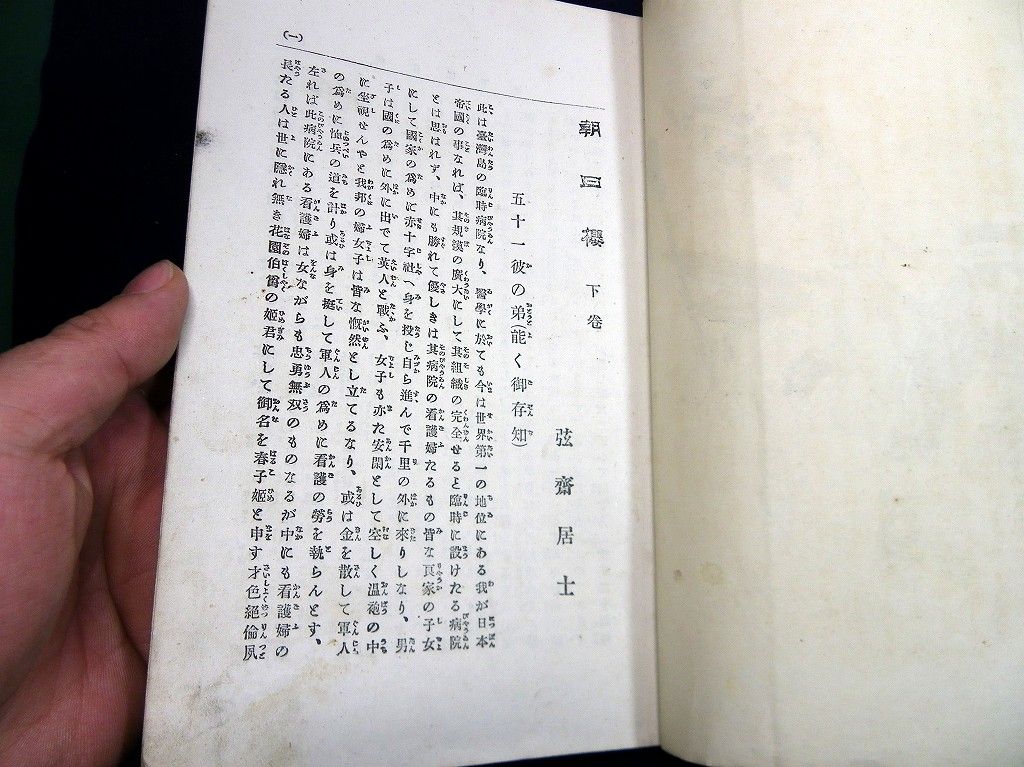 朝日櫻 下卷
弦齋居士
五十一彼の弟(能く御存知)
此は臺灣島の臨時病院なり、醫學に於ても今は世界第一の地位にある我が日本
帝國の事なれば、其規漠の廣大にして其組織の完全せると臨時に設けたる病院
とは思はれず、中にも勝れて優しきは其病院の看護婦たるもの皆な良家の子女
にして國家の爲めに赤十字社へ身を投じ自ら進んで千里の外に來りしなり、男
子は國の爲めに外に出でて英人と戰ふ、女子も亦た安閑として空しく溫袍の中
に坐視せんやと我邦の婦女子は皆な慨然とし立てるなり、或は金を散して軍人
の爲めに恤兵の道を計り或は身を挺して軍人の爲めに看護の勞を執らんとす、
左れば此病院にある看護婦は女ながらも忠勇無双のものなるが中にも看護婦の
長たる人は世に隱れ無き花園伯爵の姬君にして御名を春子姬と申す才色絕倫夙
(一)